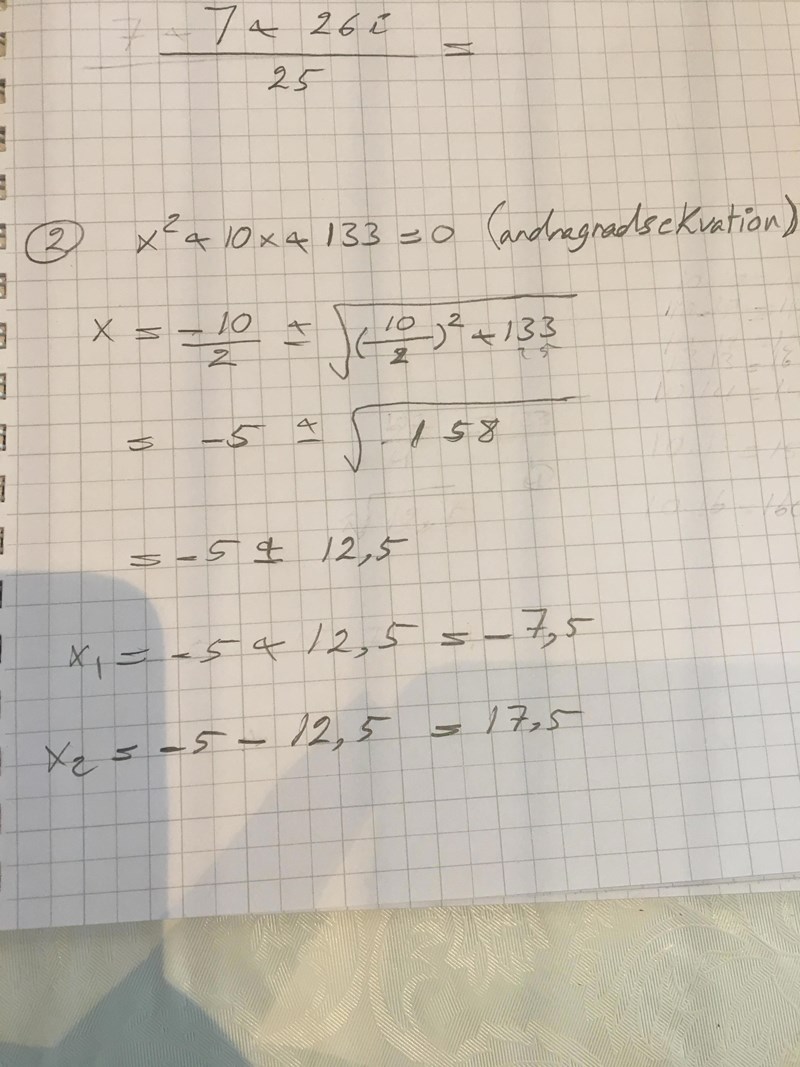 -7 + 26i
25 =
② x² + 10x + 133 = 0 (andragradsekvation)
x = -10/2 ± √(10/2)² + 133
25
= -5 ± √158
= -5 ± 12,5
x₁ = -5 + 12,5 = -7,5
x₂ = -5 - 12,5 = 17,5